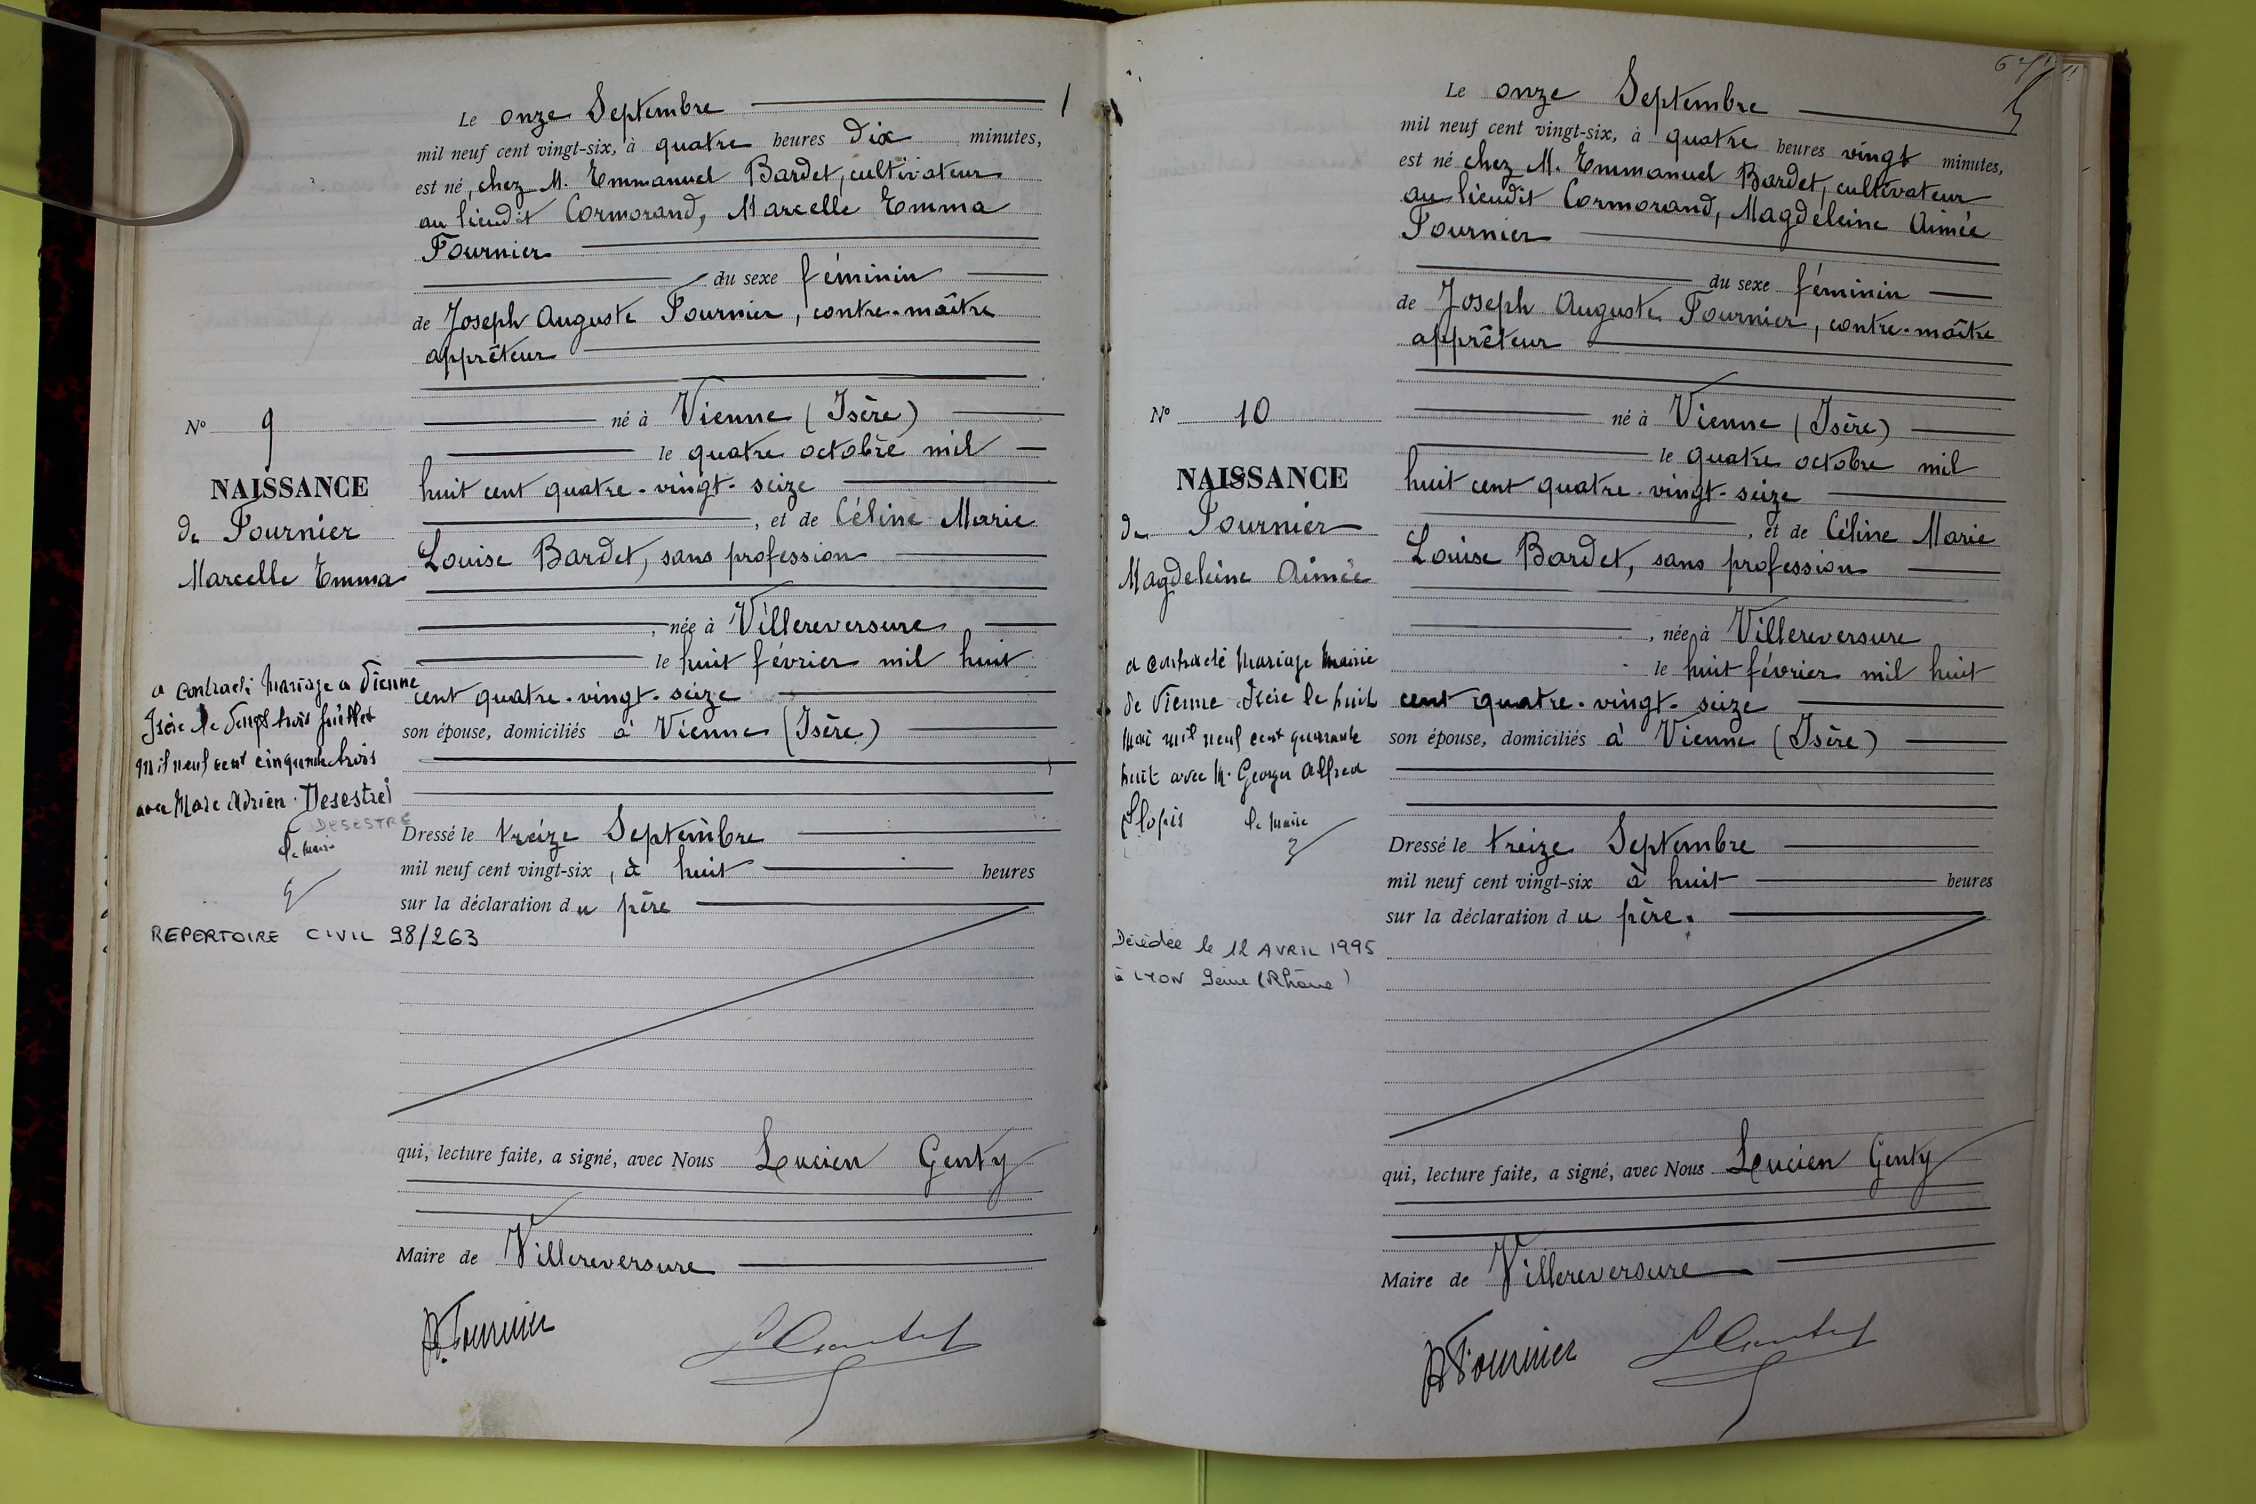 Le onze Septembre
mil neuf cent vingt-six, à quatre heures dix minutes,
est né, chez M. Emmanuel Bardet, cultivateur
au lieudit Cormorand, Marcelle Emma
Fournier
du sexe féminin
de Joseph Auguste Fournier, contre-maître
apprêteur
né à Vienne (Isère)
le quatre octobre mil
huit cent quatre-vingt-seize
, et de Céline Marie
Louise Bardet, sans profession
, née à Villereversure
le huit février mil huit
cent quatre-vingt-seize
son épouse, domiciliés à Vienne (Isère)
Dressé le treize Septembre
mil neuf cent vingt-six, à huit heures
sur la déclaration du père
qui, lecture faite, a signé, avec Nous Lucien Genty
Maire de Villereversure
Fournier
N° 9
NAISSANCE
de Fournier
Marcelle Emma
a contracté mariage a Vienne
Isère le vingt trois juillet
mil neuf cent cinquante trois
avec Marc Adrien Desestret
DESESTRE
Le Maire
REPERTOIRE CIVIL 98/263
Le onze Septembre
mil neuf cent vingt-six, à quatre heures vingt minutes,
est né chez M. Emmanuel Bardet, cultivateur
au lieudit Cormorand, Magdeleine Aimée
Fournier
du sexe féminin
de Joseph Auguste Fournier, contre-maître
apprêteur
né à Vienne (Isère)
le quatre octobre mil
huit cent quatre-vingt-seize
, et de Céline Marie
Louise Bardet, sans profession
, née à Villereversure
le huit février mil huit
cent quatre-vingt-seize
son épouse, domiciliés à Vienne (Isère)
Dressé le treize Septembre
mil neuf cent vingt-six à huit heures
sur la déclaration du père.
qui, lecture faite, a signé, avec Nous Lucien Genty
Maire de Villereversure
Fournier
N° 10
NAISSANCE
de Fournier
Magdeleine Aimée
a contracté mariage Mairie
de Vienne Isère le huit
mai mil neuf cent quarante
huit avec M. Georges Alfred
Le Maire
Décédée le 12 AVRIL 1995
à LYON 9ème (Rhône)